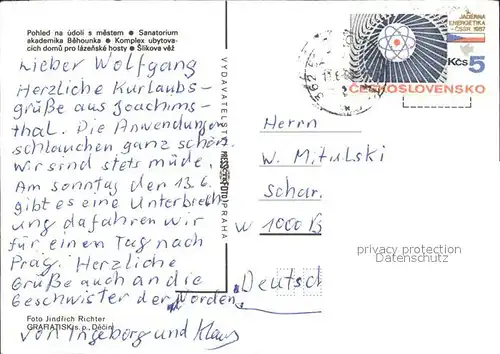 Pohled na údolí s městem ● Sanatorium
akademika Běhounka ● Komplex ubytova-
cích domů pro lázeňské hosty ● Šlikova věž
Lieber Wolfgang
Herzliche Kurlaubs-
grüße aus Joachims-
thal. Die Anwendungen
schlauchen ganz schön.
Wir sind stets müde.
Am sonntag den 13.6.
gibt es eine Unterbrech
ung da fahren wir
für einen Tag nach
Prag. Herzliche
Grüße auch an die
Geschwister der Norden
von Ingeborg und Klaus
Foto Jindřich Richter
GRAFIATISK (s. p., Děčín)
PRAHA
JADERNÁ
ENERGETIKA
ČSSR 1987
Kčs 5
ČESKOSLOVENSKO
Herrn
W. Mitulski
Schar.
W 1000 B
Deutsch
privacy protection
Datenschutz